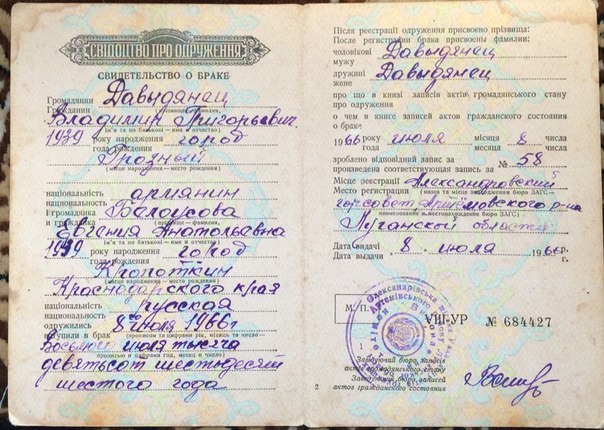 СВІДОЦТВО ПРО ОДРУЖЕННЯ
СВИДЕТЕЛЬСТВО О БРАКЕ
Громадянин Давыдянец
Гражданин
Владимир Григорьевич
(ім'я та по батькові — имя и отчество)
1939 року народження город
года рождения
Грозный
(місце народження — место рождения)
національність армянин
национальность
і громадянка Белоусова
и гражданка
Евгения Анатольевна
(ім'я та по батькові — имя и отчество)
1939 року народження город
года рождения
Кропоткин
(місце народження — место рождения)
Краснодарского края
національність русская
национальность
одружились 8го июля 1966 г
вступили в брак
Восьмого июля тысяча
прописью и цифрами год, месяц и число)
девятьсот шестьдесят
шестого года
Після реєстрації одруження присвоєно прізвища:
После регистрации брака присвоены фамилии:
чоловікові Давыдянец
мужу
дружині Давыдянец
жене
про що в книзі записів актів громадянського стану
про одруження
о чем в книге записей актов гражданского состояния
о браке
1966 року июля місяця 8 числа
года месяца числа
зроблено відповідний запис за
произведена соответствующая запись за № 58
Місце реєстрації Александровский
Место регистрации
горсовет Артёмовского р-на
Луганской области
Дата видачі 8 июля 1966 р.
Дата выдачи г.
М. П.
VIII-УР № 684427
Завідуючий бюро записів
актів громадянського стану
Заведующий бюро записей
актов гражданского состояния
2